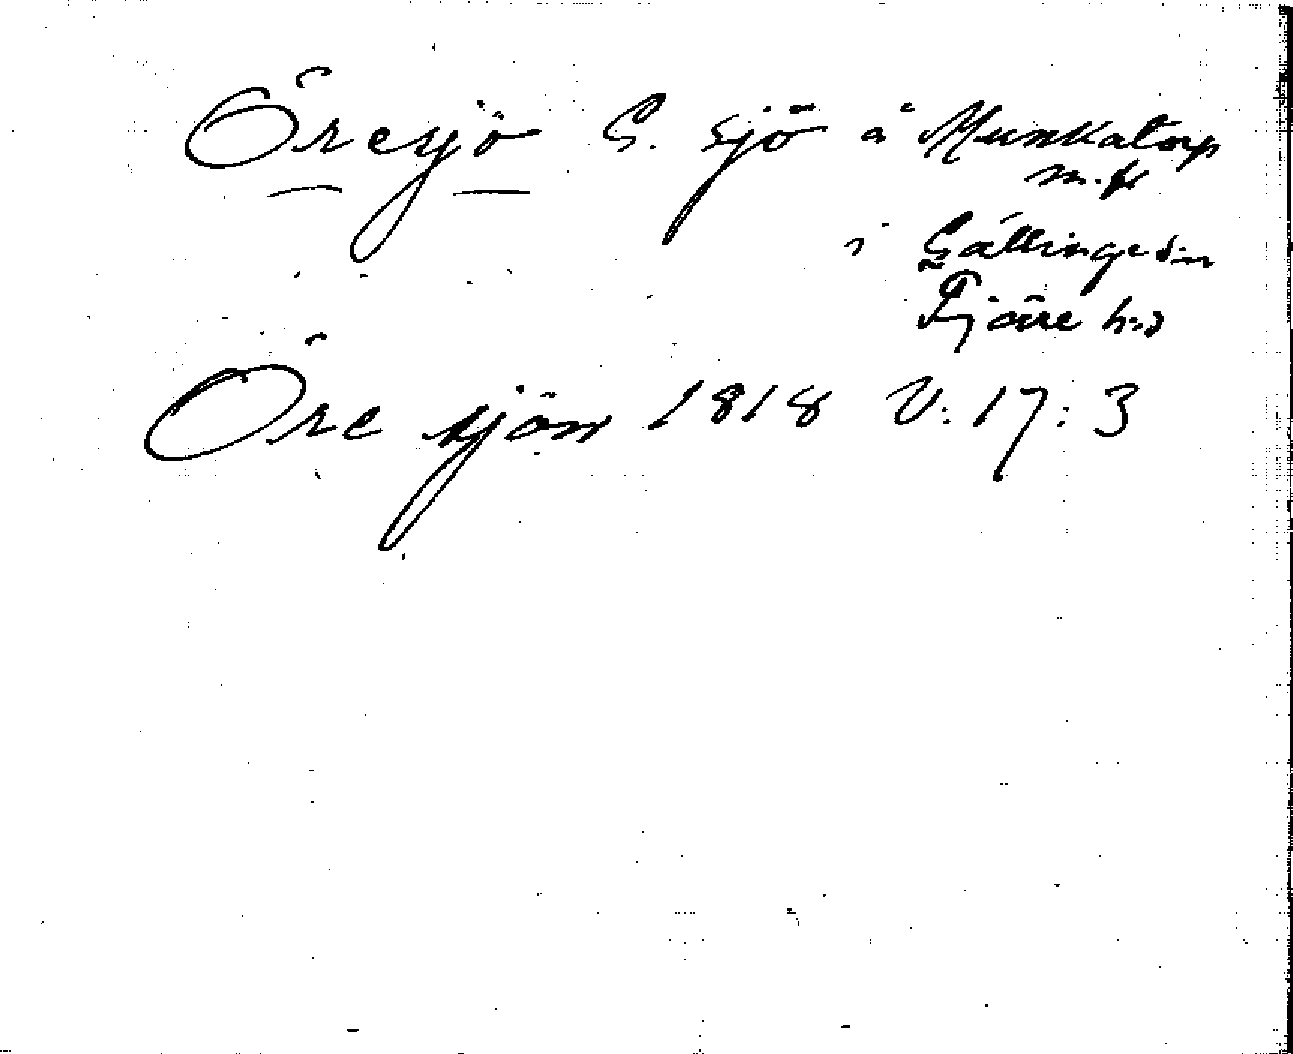 Öresjö G. sjö å Munkatorp
m. fl.
i Gällinge s:n
Fjäre h:d
Öre sjön 1818 V: 17: 3